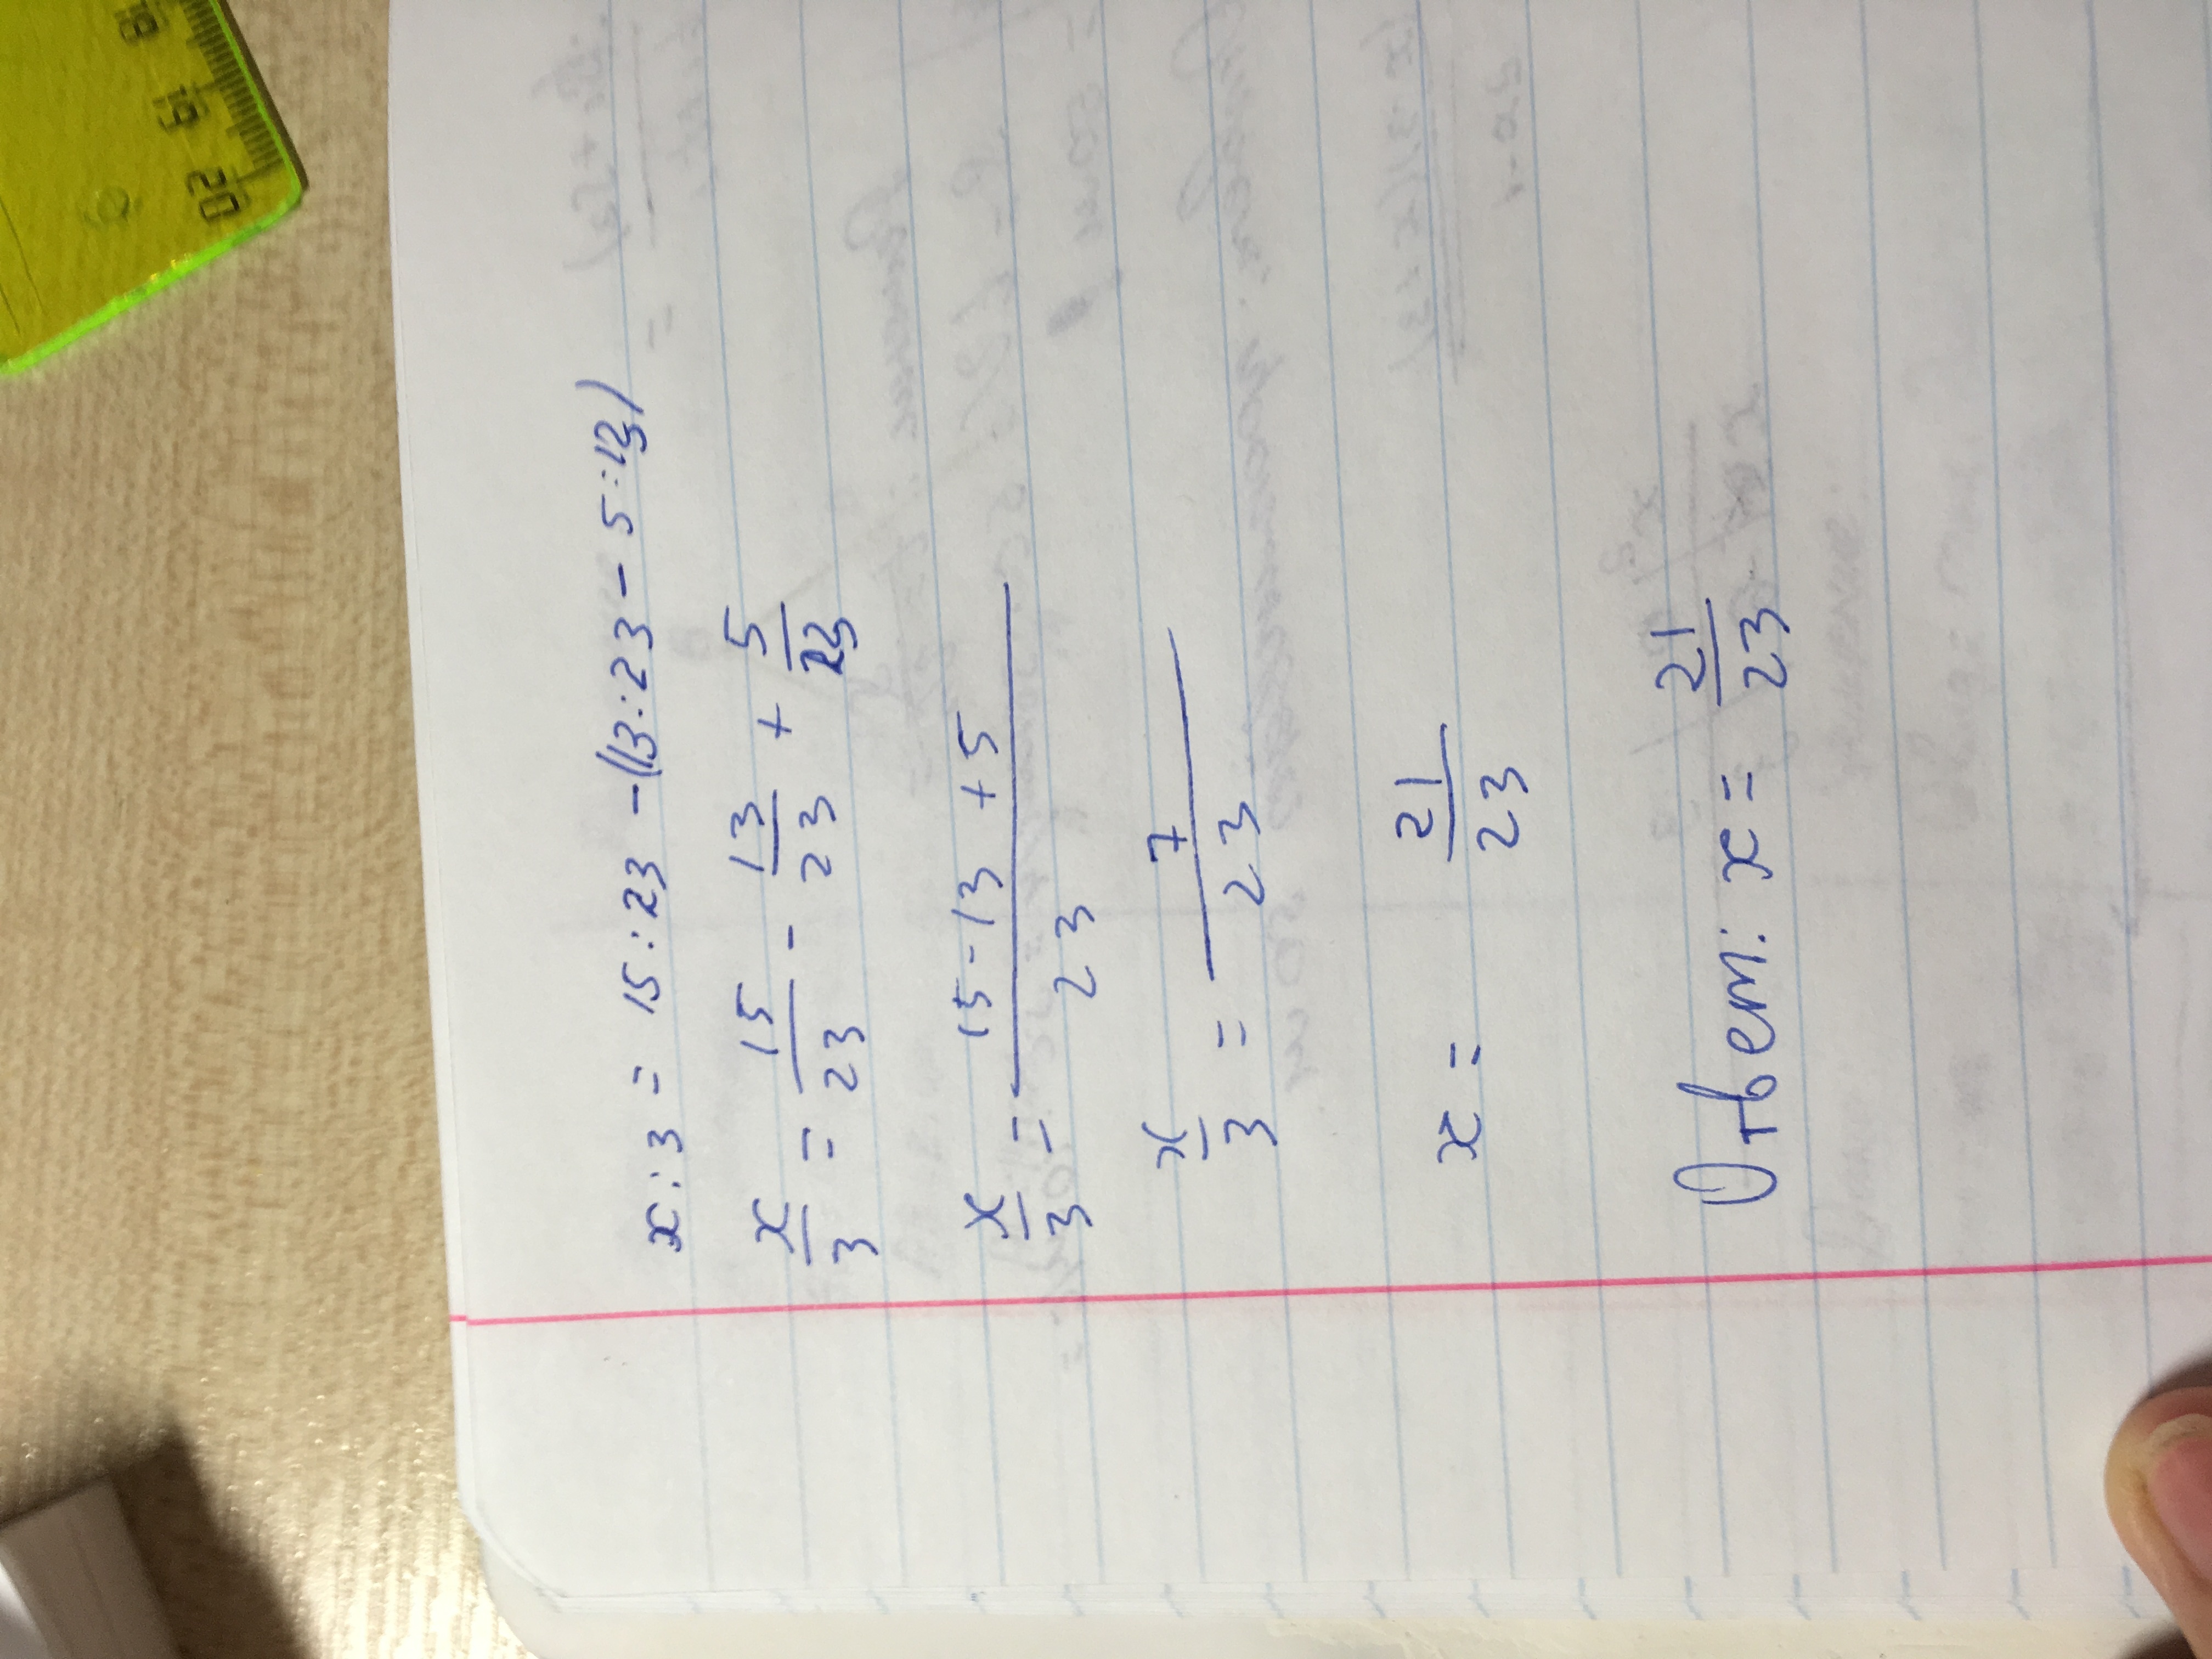 x : 3 = 15 : 23 - (13 : 23 - 5 : 23)
x/3 = 15/23 - 13/23 + 5/23
x/3 = (15 - 13 + 5)/23
x/3 = 7/23
x = 21/23
Ответ: x = 21/23
18 19 20